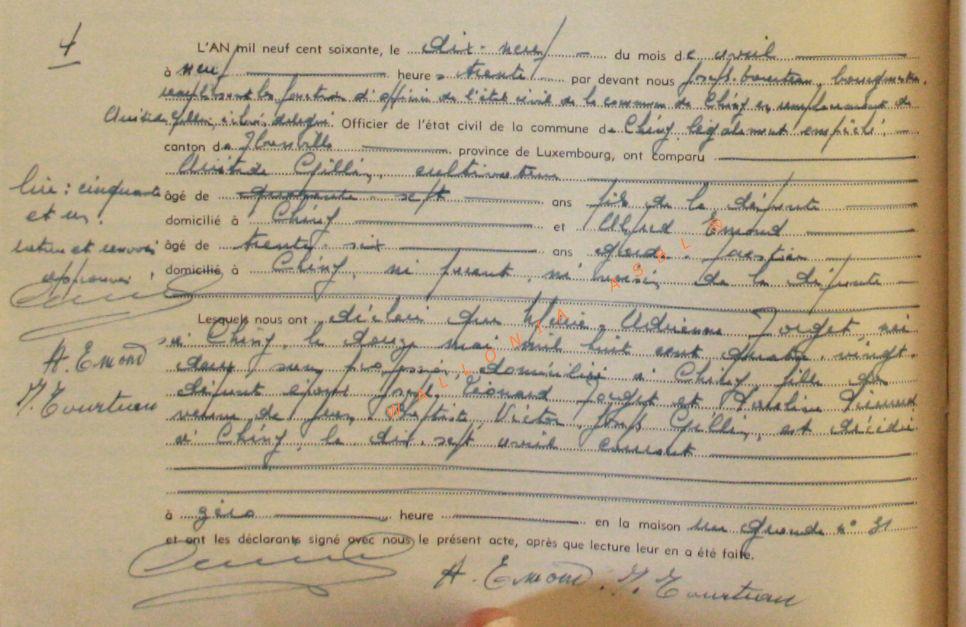 4
L'AN mil neuf cent soixante, le dix-neuf du mois de avril
à neuf heures trente par devant nous Joseph bourgmestre,
remplissant les fonction d'officier de l'état civil de la commune de Chiny en remplacement de
Aristide Gillin, échevin délégué Officier de l'état civil de la commune de Chiny légalement empêché,
canton de Florenville province de Luxembourg, ont comparu
Aristide Gillin, cultivateur
âgé de quarante sept ans fils de la défunte
domicilié à Chiny et Alfred Emond
âgé de trente-six ans garde forestier
domicilié, à Chiny, ni parent, ni voisin de la défunte
lire: cinquante
et un.
rature et renvoi
approuvés.
A. Emond
J. Tourteau
Lesquels nous ont déclaré que Marie, Adrienne Forget, née
à Chiny, le douze mai mil huit cent quatre-vingt-
deux sans profession, domiciliée à Chiny, fille des
défunt époux Joseph Léonard Forget et Pauline Pierard
veuve de Jean Baptiste, Victor Joseph Gillin, est décédée
à Chiny, le dix-sept avril courant
à zéro heure en la maison rue Grande n° 31
et ont les déclarants signé avec nous le présent acte, après que lecture leur en a été faite.
A. Emond. J. Tourteau
WALLONIA ASBL ©